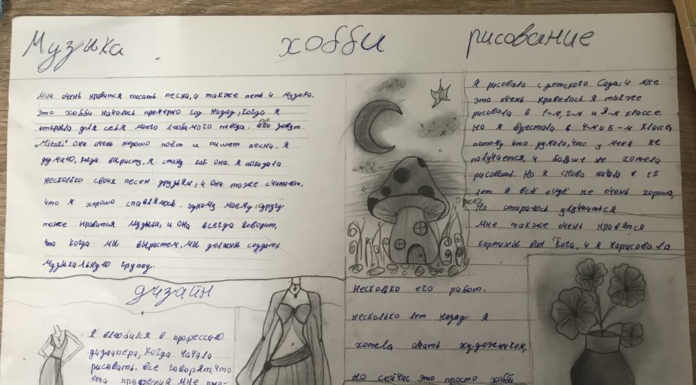 Музыка хобби рисование
Мне очень нравится писать песни, а также петь и музыка.
Это хобби началось примерно год назад, когда я
открыла для себя моего любимого певца. его зовут
она очень хорошо поёт и пишет песни. Я
думаю, когда вырасту, я стану как она. Я показала
несколько своих песен друзьям, и они тоже считают,
что я хорошо справляюсь. одному моему другу
тоже нравится музыка, и она всегда говорит,
что когда мы вырастем, мы должны создать
музыкальную группу.
Я рисовала с детского сада, и мне
это очень нравилось я также
рисовала в 1-м, 2-м и 3-м классе
Но я перестала в 4-м и 5-м классе,
потому что думала, что у меня не
получается, и больше не хотела
рисовать. Но я снова начала в 6
лет я всё ещё не очень хороша,
но стараюсь улучшиться
Мне также очень нравятся
картины Ван Гога, и я нарисовала
несколько его работ.
несколько лет назад я
хотела стать художником,
но сейчас это просто хобби
дизайн
Я влюбился в профессию
дизайнера, когда начала
рисовать. все говорят, что
эта профессия мне